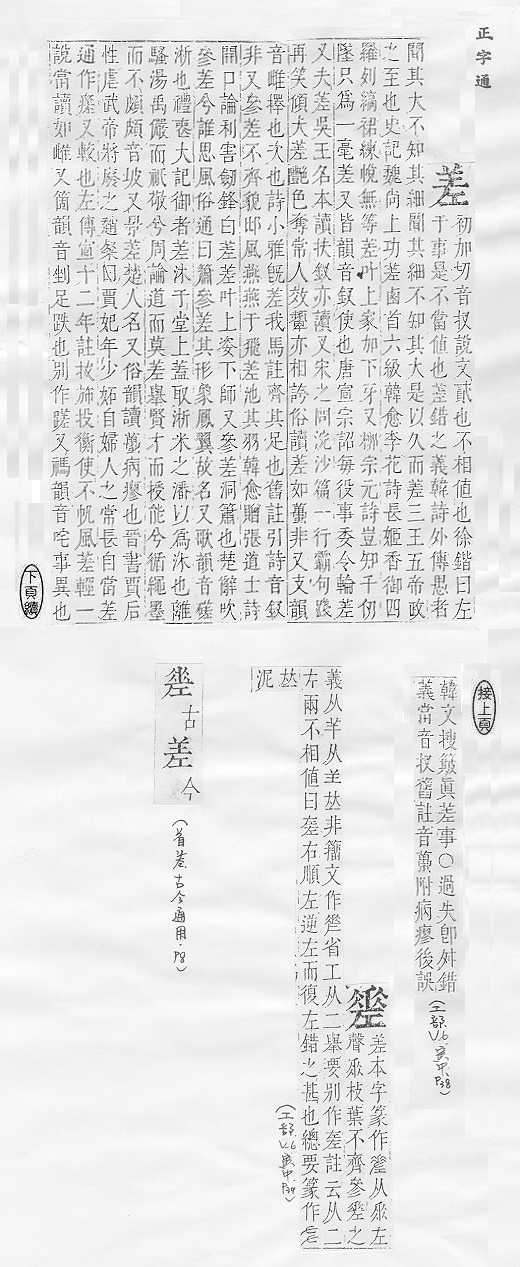 正字通
差
初加切音扠說文貳也不相値也徐鍇曰左
于事是不當値也差錯之義韓詩外傳愚者
聞其大不知其細聞其細不知其大是以久而差三王五帝政
之至也史記魏尙上功差鹵首六級韓愈李花詩長姬香御四
羅列縞裙練帨無等差叶上家加下牙又柳宗元詩豈知千仞
墜只爲一毫差又皆韻音釵使也唐宣宗詔每役事委令輪差
又夫差吳王名本讀扶釵亦讀又宋之問浣沙篇一行霸句踐
再笑傾夫差艷色奪常人效顰亦相誇俗讀差如蔓非又支韻
音雌擇也次也詩小雅旣差我馬註齊其足也舊註引詩音釵
非又參差不齊貌邶風燕燕于飛差池其羽韓愈贈張道士詩
開口論利害劒鋒白差差叶上姿下師又參差洞簫也楚辭吹
參差兮誰思風俗通曰簫參差其形象鳳翼故名又歌韻音磋
淅也禮喪大記御者差沐于堂上葢取淅米之潘以爲沐也離
騷湯禹儼而祇敬兮周論道而莫差舉賢才而授能兮循繩墨
而不頗頗音坡又景差楚人名又俗韻讀蔓病瘳也晉書賈后
性虐武帝將廢之趙粲曰賈妃年少妬自婦人之常長自當差
通作瘥又較也左傳宣十二年註拔斾投衡使不帆風差輕一
說當讀如雌又箇韻音剉足跌也別作蹉又禡韻音咤事異也
下頁續
接上頁
韓文搜䉤眞差事○過失卽舛錯
義當音扠舊註音蔓附病瘳後誤
(工部 V.6 寅中. P.38)
差本字篆作𢀩从𠂹左
聲𠂹枝葉不齊參𢀩之
義从羊从𦍌𡘋非籀文作𢀩省工从二舉要別作𢀩註云从二
左兩不相値曰差右順左逆左而復左錯之甚也總要篆作
泥
古
差
今
(首卷.古今通用.P8)
(工部 V.6 寅中. P.39)